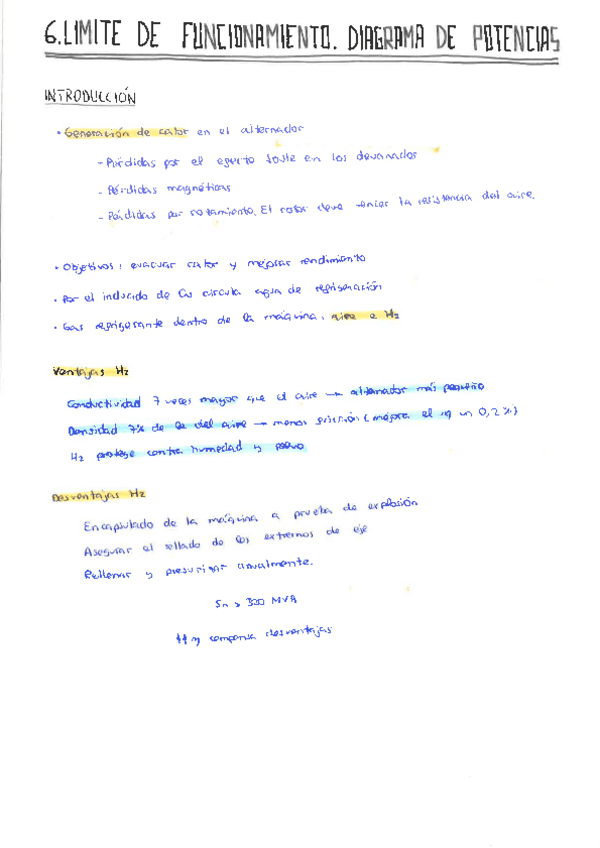 6. LIMITE DE FUNCIONAMIENTO. DIAGRAMA DE POTENCIAS
INTRODUCCIÓN
· Generación de calor en el alternador
- Pérdidas por el efecto Joule en los devanados
- Pérdidas magnéticas
- Pérdidas por rozamiento. El rotor debe vencer la resistencia del aire.
· Objetivos: evacuar calor y mejorar rendimiento
· Por el inducido de Cu circula agua de refrigeración
· Gas refrigerante dentro de la máquina: aire e H2
Ventajas H2
Conductividad 7 veces mayor que el aire → alternador más pequeño
Densidad 7% de la del aire → menos fricción (mejora el η un 0,2%)
H2 protege contra humedad y polvo
Desventajas H2
Encapsulado de la máquina a prueba de explosión
Asegurar el sellado de los extremos de eje
Rellenar y presurizar anualmente.
Sn > 320 MVA
↑↑ η compensa desventajas